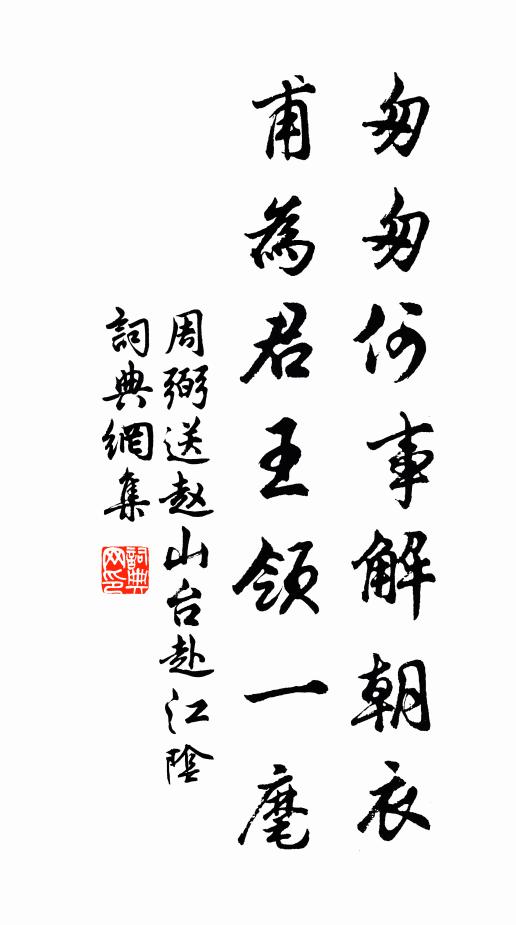 匆匆何事解朝衣
甫為君王領一麾
周弼送赵山台赴江陰
詞典網集
詞典网印